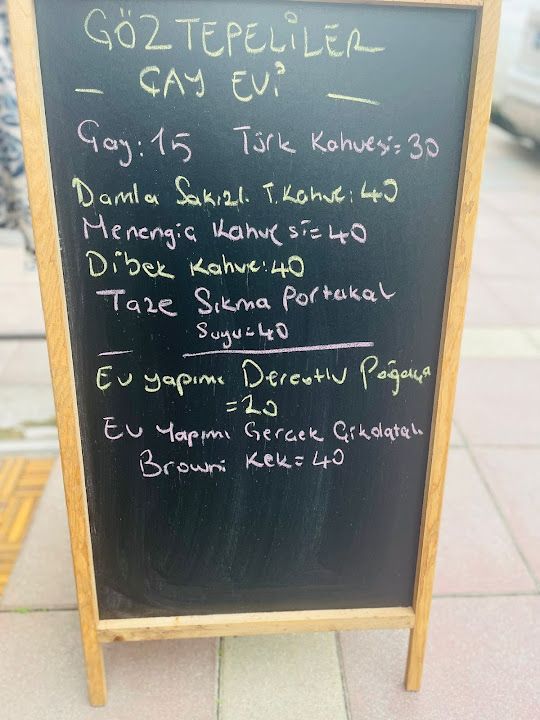 GÖZTEPELİLER
— ÇAY EVİ —
Çay: 15 Türk Kahvesi = 30
Damla Sakızlı T. Kahve: 40
Menengiç Kahvesi = 40
Dibek Kahve: 40
Taze Sıkma Portakal
Suyu = 40
Ev yapımı Dereotlu Poğaça
= 20
Ev Yapımı Gerçek Çikolatalı
Browni Kek = 40